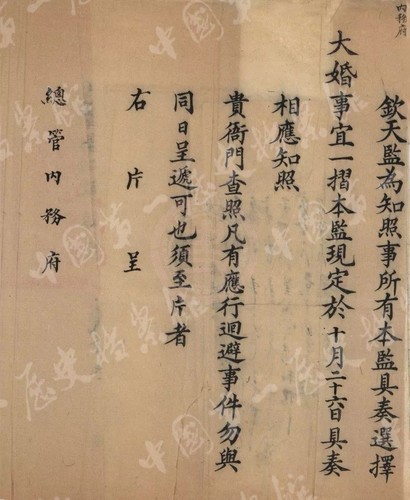 内務府
欽天監為知照事所有本監具奏選擇
大婚事宜一摺本監現定於十月二十六日具奏
相應知照
貴衙門查照凡有應行迴避事件勿與
同日呈遞可也須至片者
右片呈
總管內務府
中國第一歷史檔案館